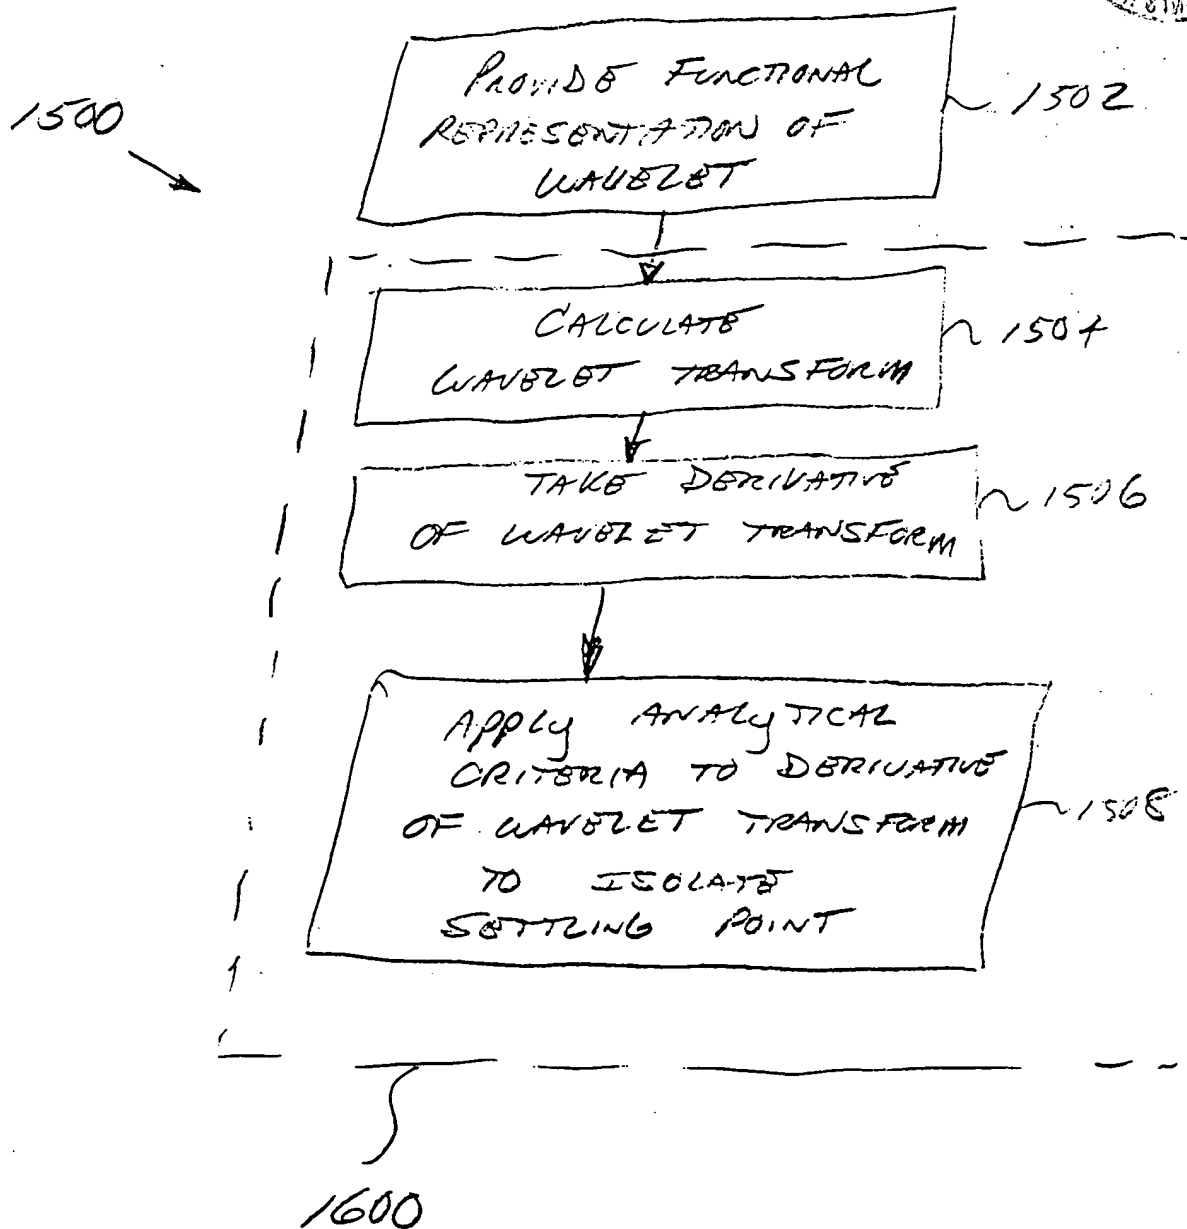 PROVIDE FUNCTIONAL
REPRESENTATION OF
WAVELET
1502
1500
CALCULATE
WAVELET TRANSFORM
1504
TAKE DERIVATIVE
OF WAVELET TRANSFORM
1506
APPLY ANALYTICAL
CRITERIA TO DERIVATIVE
OF WAVELET TRANSFORM
TO ISOLATE
SETTLING POINT
1508
1600